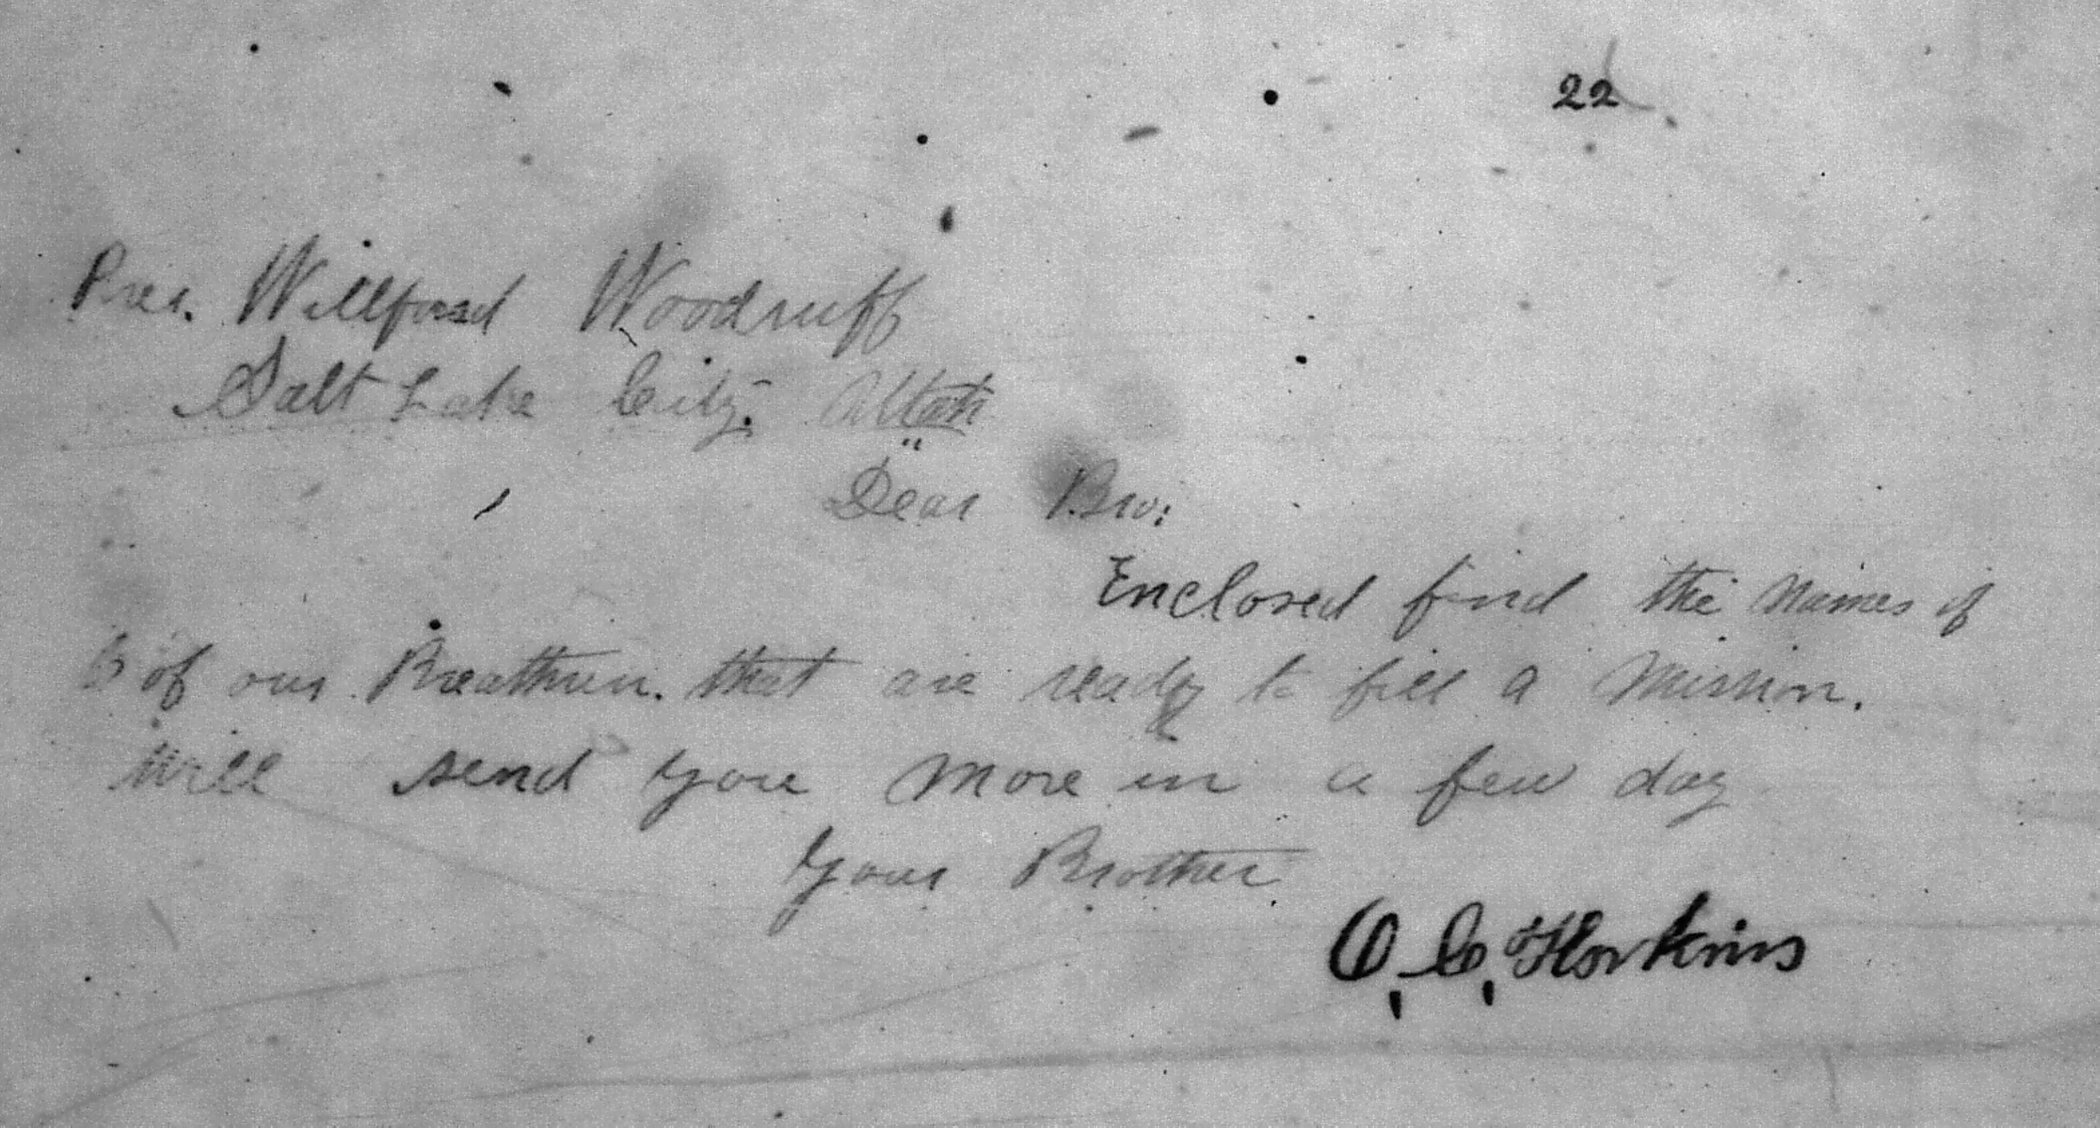 22
Pres. Willford Woodruff
Salt Lake City. Utah
Dear Bro:
Enclosed find the Names of
6 of our Breathren. that are ready to fill a Mission.
Will send you more in a few day
Your Brother
O. C. Hoskins